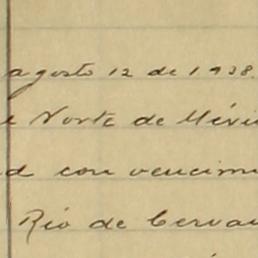 agosto 12 de 1938.
Norte de Méxi
d con vencimi
Río de Cervan